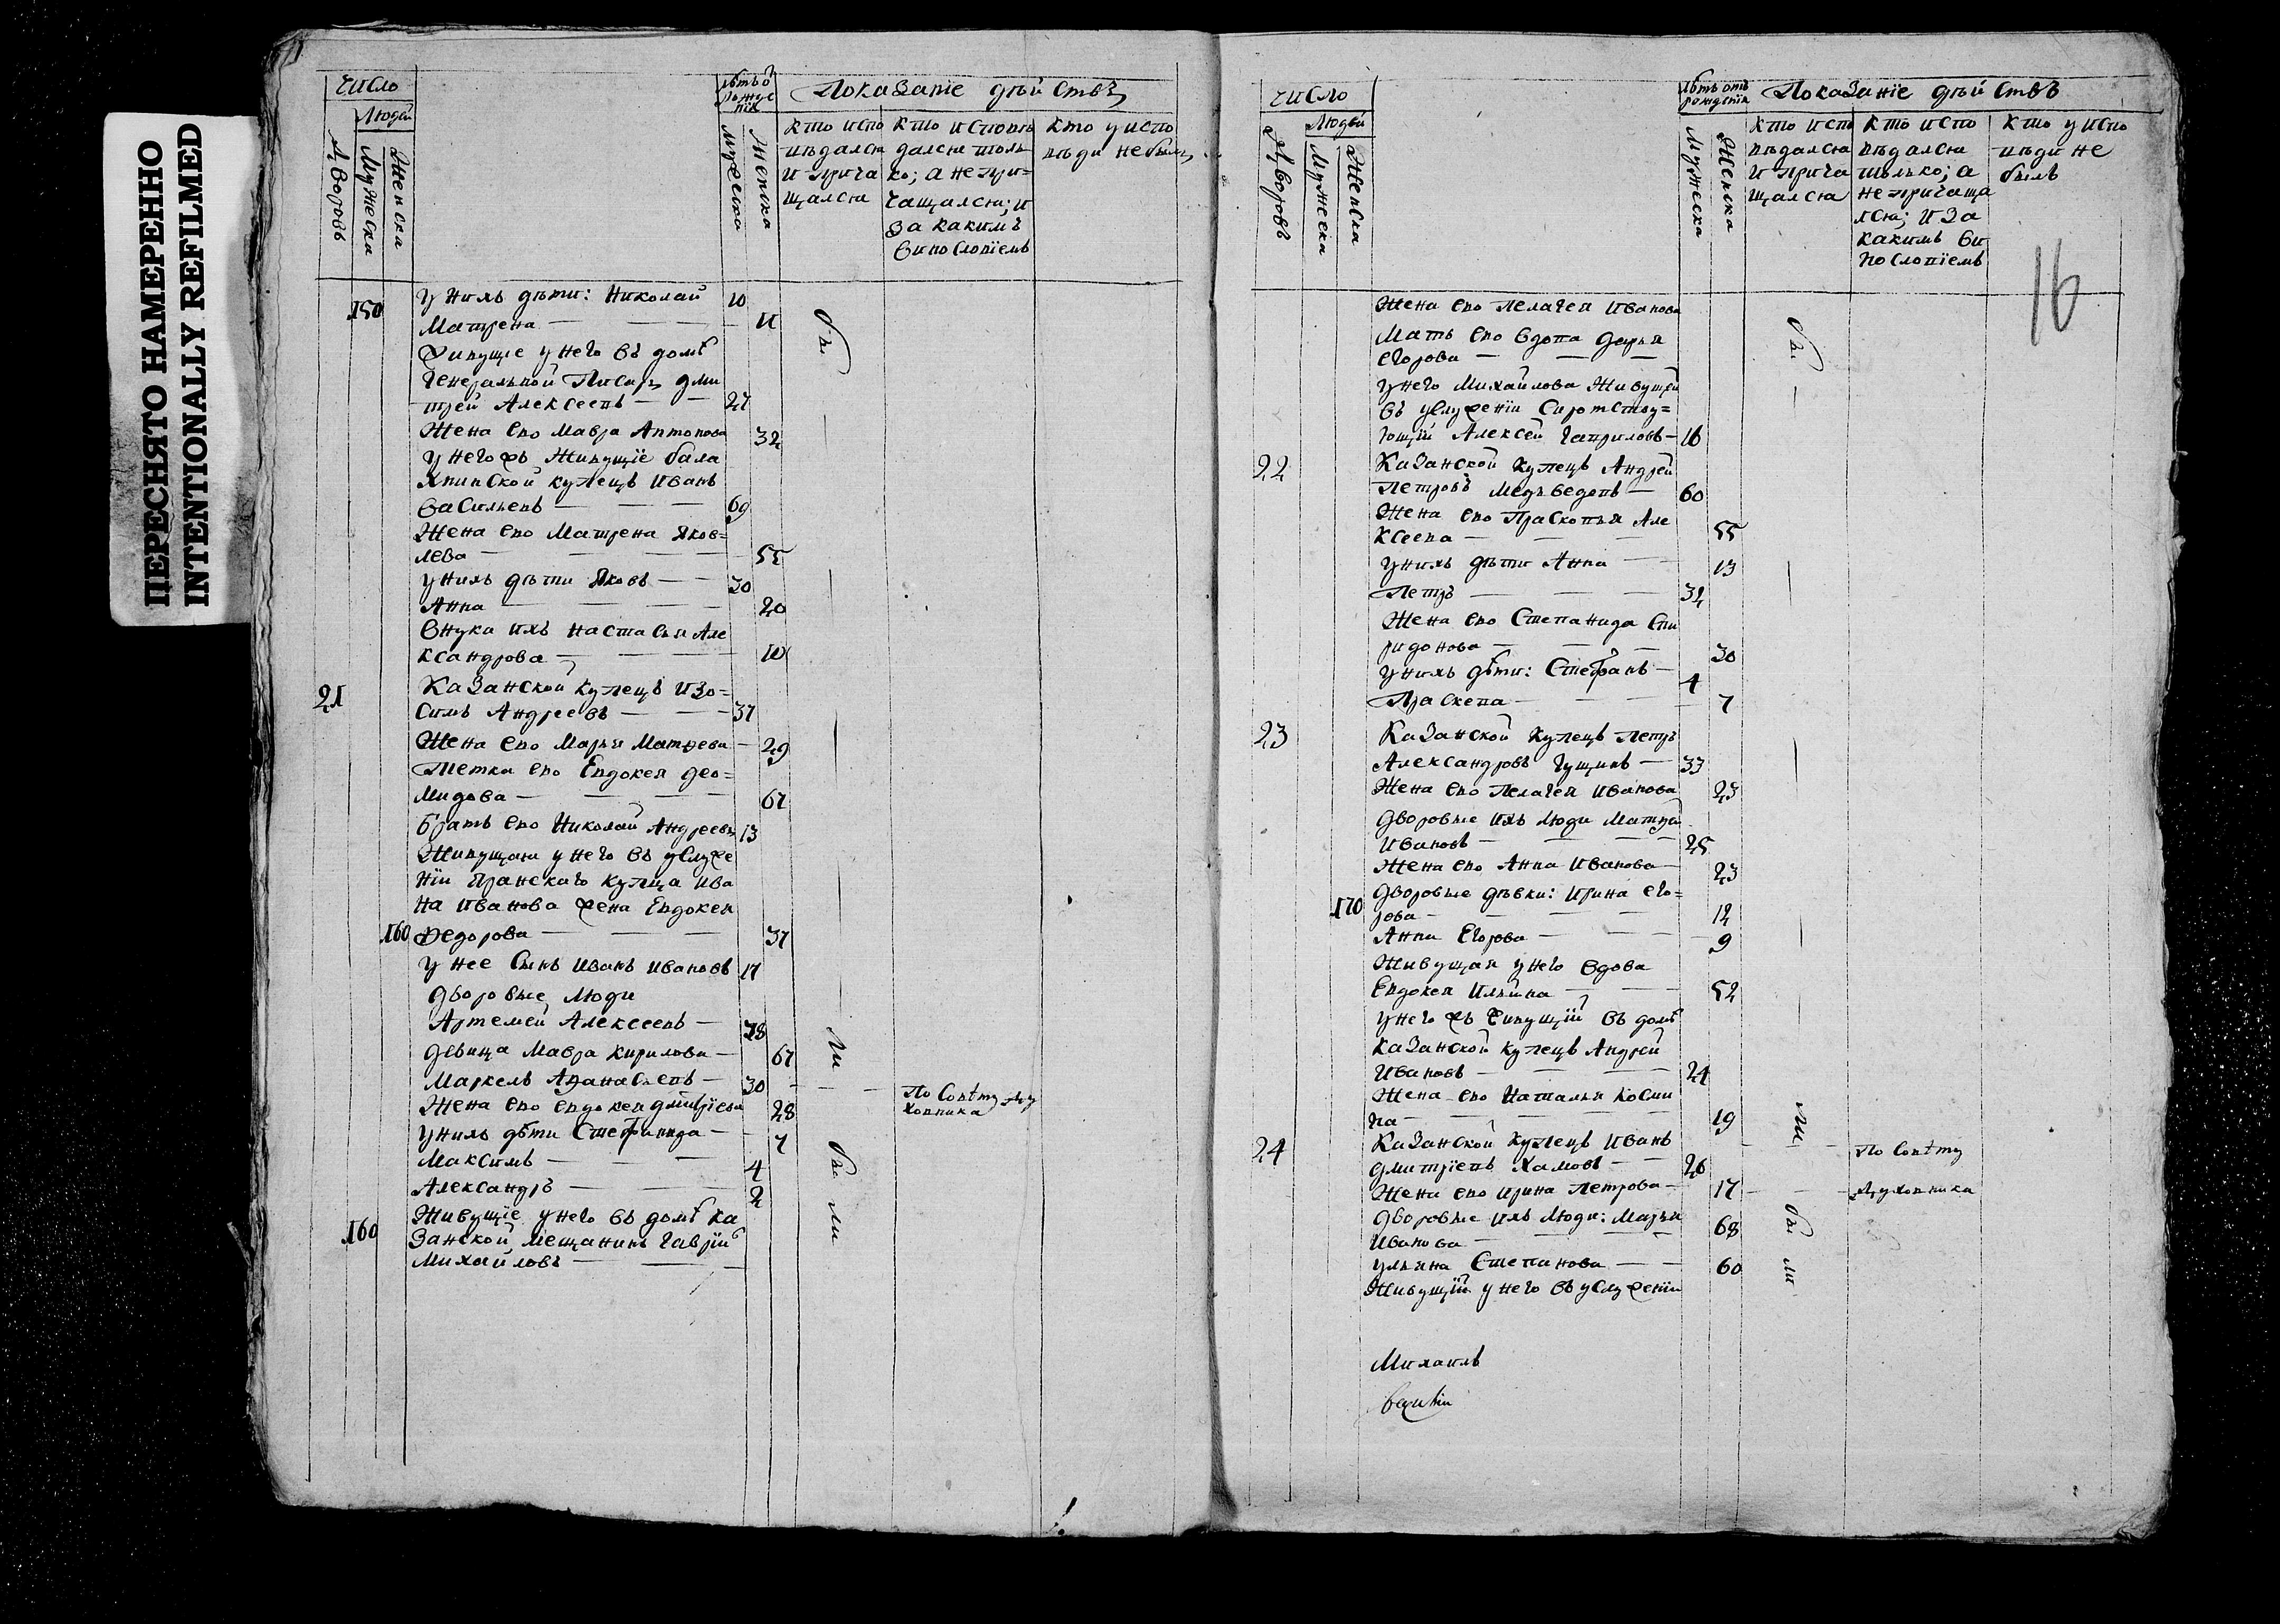 ПЕРЕСНЯТО НАМЕРЕННО
INTENTIONALLY REFILMED
Число
Людей
Дворовъ
Мужеска
Женска
лѣтъ ѿ рожденія
Мужеска
Женска
Показаніе дѣйствъ
кто исповѣдался и причащался
кто исповѣдался только; а не причащался; и за какимъ винословіемъ
кто у исповѣди не былъ
150 У нихъ дѣти: Николай 10
Матрена 11
Живущіе у него въ домѣ
Генеральной Писарь Дми
трей Алексеевъ 27
Жена ево Мавра Антонова 32
У негожъ живущіе бала
хнинской купецъ Иванъ
Васильевъ 69
Жена ево Матрена Яков=
лева 55
У нихъ дѣти Яковъ 30
Анна 20
Внука ихъ Настасья Але
ксандрова 10
21 Казанской купецъ Изо=
симъ Андреевъ 37
Жена ево Марья Матѳева 29
Тетка ево Евдокея Део=
мидова 67
Братъ ево Николай Андреевъ 13
Живущая у него въ услуже
ніи Яранскаго купца Ива
на Иванова жена Евдокея
160 Ѳедорова 37
У нее сынъ Иванъ Ивановъ 17
Дворовые люди
Артемей Алексеевъ 78
Девица Мавра Кирилова 67
Маркелъ Аѳанасьевъ 30
По совѣту Духовника
Жена ево Евдокея Дмитріева 28
У нихъ дѣти Стефанида 7
Максимъ 4
Александръ 2
Живущіе у него въ домѣ ка
160 занской мещанинъ Гаврій
Михайловъ
бы
ли
бы
ли
16
Число
Людей
Дворовъ
Мужеска
Женска
лѣтъ отъ рожденія
Мужеска
Женска
Показаніе дѣйствъ
кто исповѣдался и причащался
кто исповѣдался только; а не причащался; и за какимъ винословіемъ
кто у исповѣди не былъ
Жена ево Пелагея Иванова
Мать ево вдова Дарья
Егорова
У него Михайлова живущей
въ услуженіи сиротству=
ющій Алексей Гавриловъ 16
22 Казанской купецъ Андрей
Петровъ Медъведевъ 60
Жена ево Прасковья Але
ксеева 55
У нихъ дѣти Анна 13
Петръ 32
Жена ево Степанида Спи
ридонова 30
У нихъ дѣти: Стефанъ 4
Праскева 7
23 Казанской купецъ Петръ
Александровъ Гущинъ 33
Жена ево Пелагея Иванова 23
Дворовые ихъ люди Матвей
Ивановъ 25
Жена ево Анна Иванова 23
Дворовые дѣвки: Ирина Его=
170 рова 12
Анна Егорова 9
Живущая у него вдова
Евдокея Ильина 52
У негожъ живущій въ домѣ
казанской купецъ Андрей
Ивановъ 24
Жена ево Наталья Косми
на 19
24 Казанской купецъ Иванъ
Дмитріевъ Хамовъ 26
По совѣту
Жена ево Ирина Петрова 17
Духовника
Дворовые ихъ люди: Марья
Иванова 68
Ульяна Степанова 60
Живущій у него въ услуженіи
бы
ли
бы
ли
Михаилъ